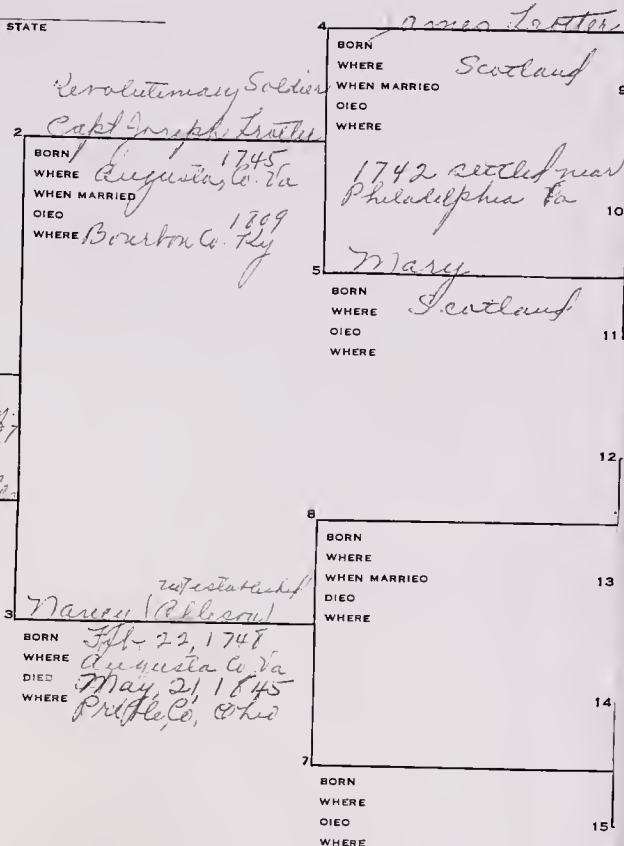 STATE
4 James Trotter
BORN
WHERE Scotland
WHEN MARRIEO
OIEO
WHERE
9
1742 settled near
Philadelphia Pa
10
Revolutionary Soldier
Capt Joseph Trotter
2
BORN 1745
WHERE Augusta, Co. Va
WHEN MARRIED
OIEO 1809
WHERE Bourbon Co. Ky
5 Mary
BORN
WHERE Scotland
OIEO
WHERE
11
12
8
BORN
WHERE
WHEN MARRIEO
DIEO
WHERE
13
not established
3 Nancy (Allison)
BORN Feb- 22, 1748
WHERE Augusta Co. Va
DIED May, 21, 1845
WHERE Preble, Co, Ohio
14
7
BORN
WHERE
OIEO
WHERE
15